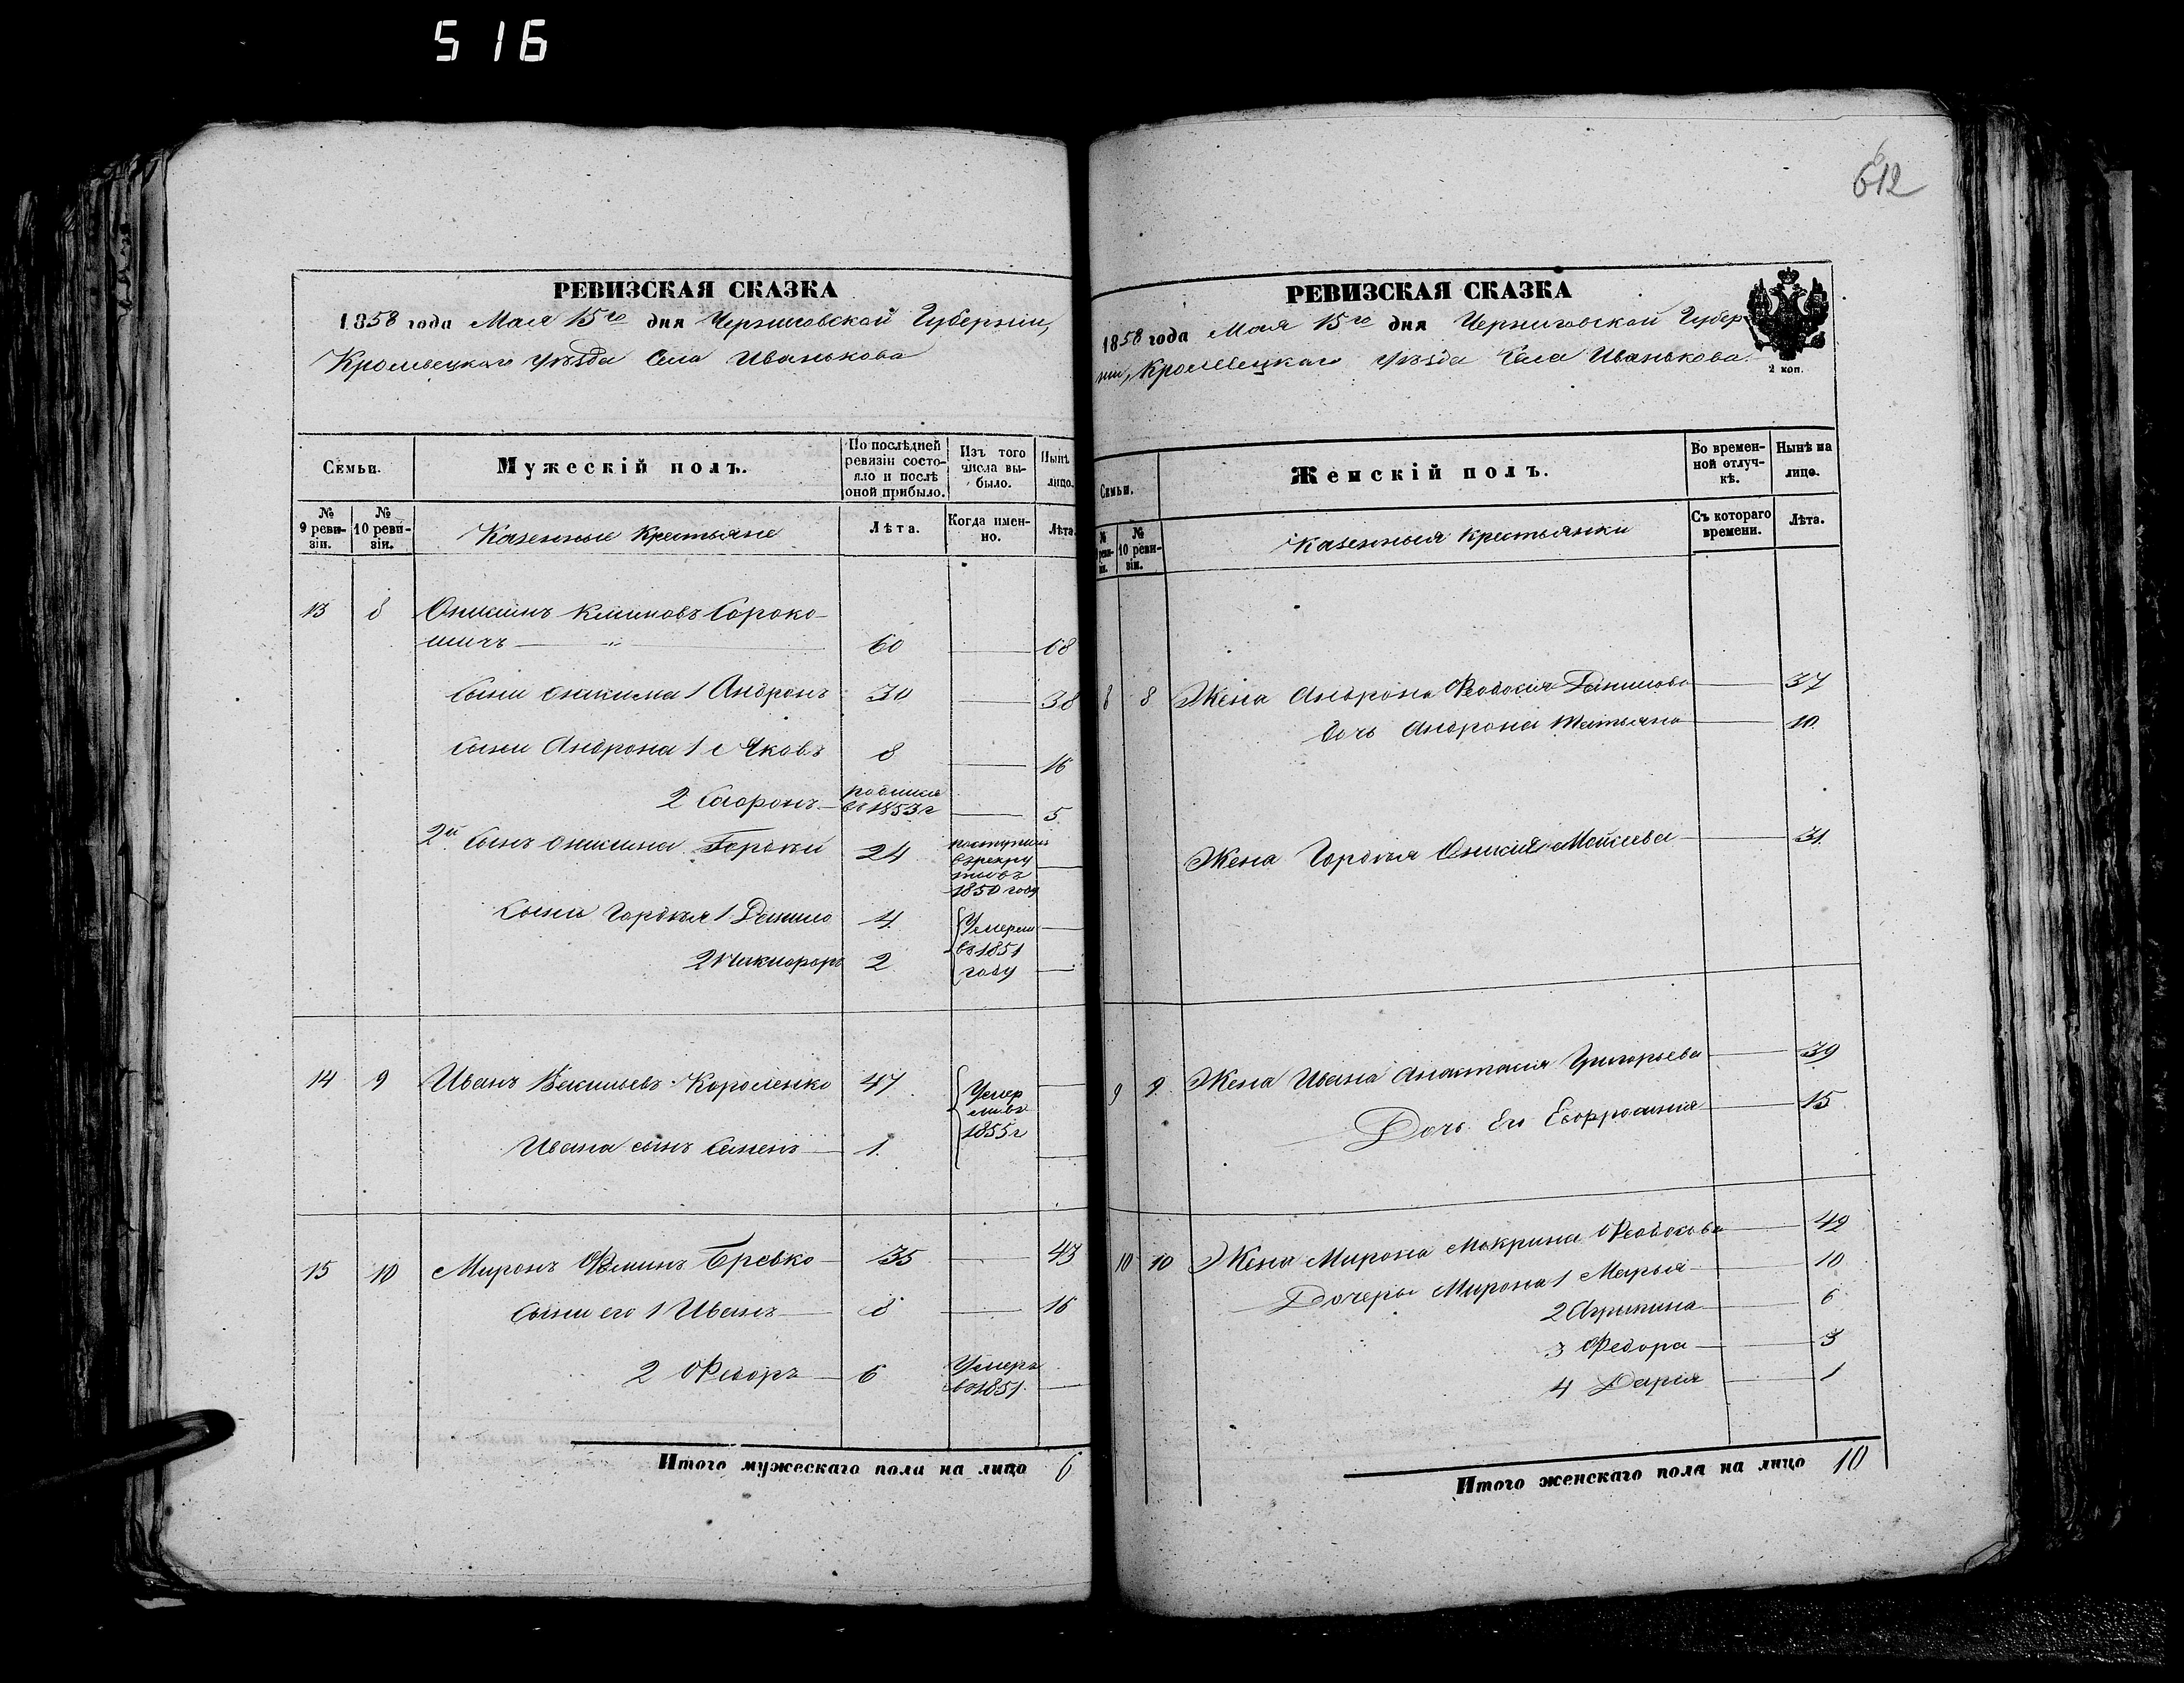 516
612
РЕВИЗСКАЯ СКАЗКА
1858 года Мая 15го дня Черниговской Губерніи,
Кролевецкаго уѣзда Села Иванькова
Семьи.
Мужескій полъ.
По послѣдней ревизіи состояло и послѣ оной прибыло.
Изъ того числа выбыло.
Нынѣ лицо.
№ 9 ревизіи.
№ 10 ревизіи.
Казенные Крестьяне
Лѣта.
Когда именно.
Лѣта.
13 8 Онисимъ Климовъ Сороко-
60 68
Сыни Онисима 1 Андронъ 30 38
Сыни Андрона 1 Яковъ 8 16
2 Сафронъ родился въ 1853 г 5
2й Сынъ Онисима Гордѣй 24 поступилъ въ рекрутовъ 1850 году
Сыни Гордѣя 1 Данило 4 Умерли въ 1851 году
2 Никифоръ 2
14 9 Иванъ Васильевъ Короленко 47 Умерли въ 1855 г
Ивана сынъ Семенъ 1
15 10 Миронъ Фоминъ Бревко 35 43
Сыни его 1 Иванъ 8 16
2 Федоръ 6 Умеръ въ 1851
Итого мужескаго пола на лицо 6
РЕВИЗСКАЯ СКАЗКА
1858 года Мая 15го дня Черниговской Губер
ніи, Кролевецкаго уѣзда Села Иванькова.
2 коп.
Семьи.
Женскій полъ.
Во временной отлучкѣ.
Нынѣ на лицо.
№ 10 ревизіи.
Казенныя Крестьянки
Съ котораго времени.
Лѣта.
8 8 Жена Андрона Феодосія Данилова 37
Дочь Андрона Татьяна 10
Жена Гордѣя Моисеева 31
9 9 Жена Ивана Анастасія Григорьева 39
Дочь Его Евфросинія 15
10 10 Жена Мирона Макрина 42
Дочеры Мирона 1 Марья 10
2 Агрипина 6
3 Федора 3
4 Дарія 1
Итого женскаго пола на лицо 10